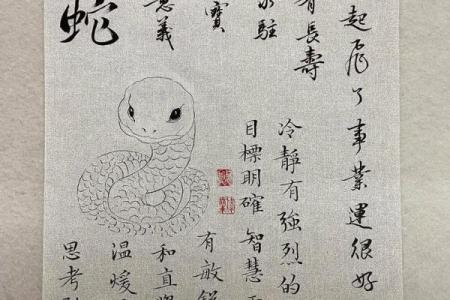 起飛了事業運很好
有長壽
駐
寶
意義
蛇
冷靜有強烈的
目標明確 智慧
有敏銳
和直覺
溫暖
思考